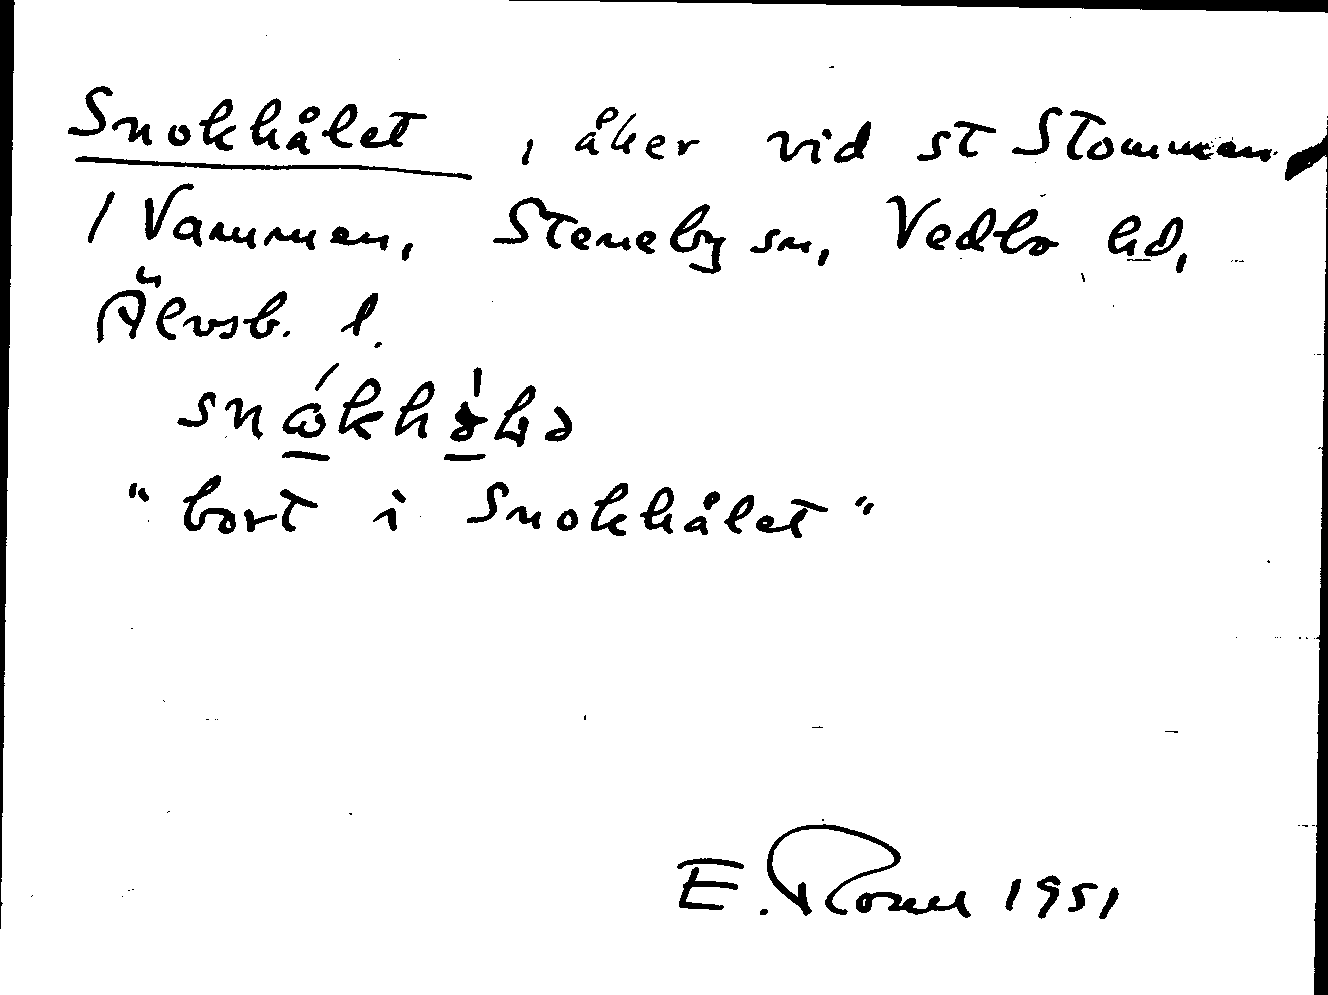 Snokhålet, åker vid st Stommen
/ Vammen, Steneby sn, Vedbo hd,
Älvsb. l.
"bort i Snokhålet"
E. 1951